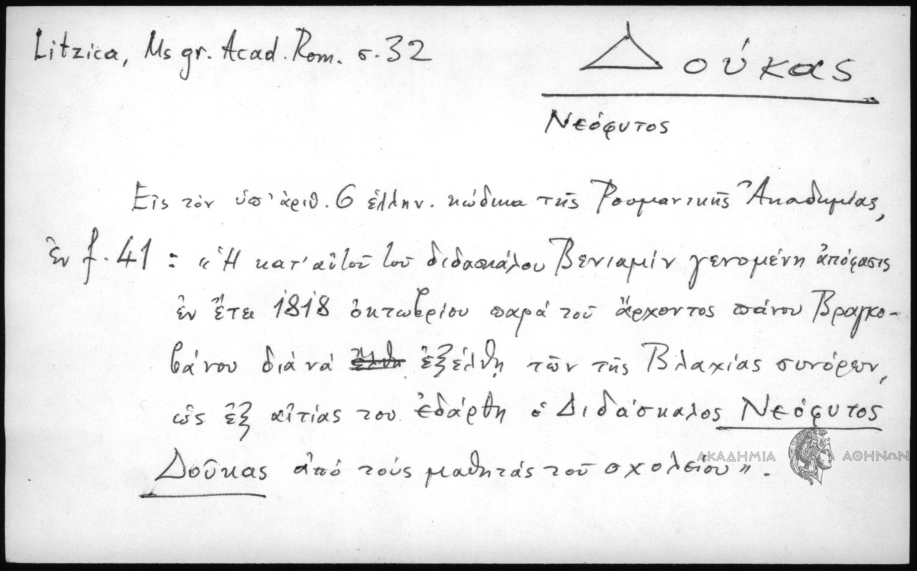 Litzica, Ms gr. Acad. Rom. σ. 32
Δούκας
Νεόφυτος
Εἰς τὸν ὑπ' ἀριθ. 6 ἑλλην. κώδικα τῆς Ρουμανικῆς Ἀκαδημίας,
ἐν f. 41 : «Ἡ κατ' αὐτοῦ τοῦ διδασκάλου Βενιαμὶν γενομένη ἀπόφασις
ἐν ἔτει 1818 ὀκτωβρίου παρὰ τοῦ ἄρχοντος πάνου Βραγκο-
βάνου διὰ νὰ ἐξέλθῃ τῶν τῆς Βλαχίας συνόρων,
ὡς ἐξ αἰτίας του ἐδάρθη ὁ Διδάσκαλος Νεόφυτος
Δοῦκας ἀπὸ τοὺς μαθητὰς τοῦ σχολείου».
ΑΚΑΔΗΜΙΑ ΑΘΗΝΩΝ